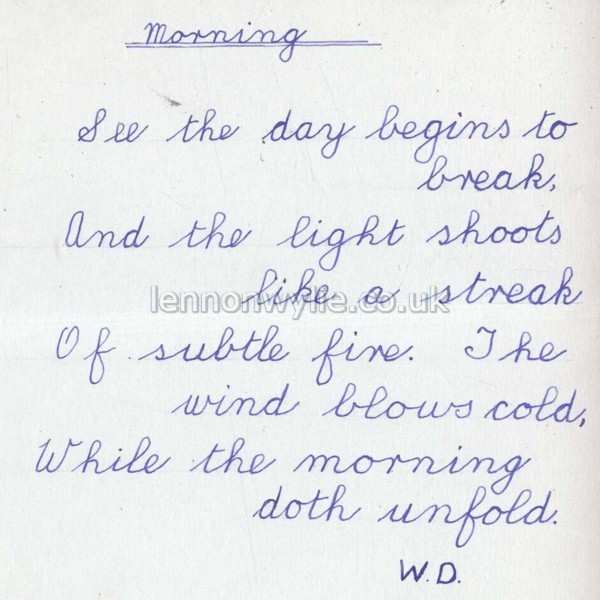 Morning
See the day begins to
break,
And the light shoots
like a streak
lennonwylie.co.uk
Of subtle fire. The
wind blows cold,
While the morning
doth unfold.
W.D.